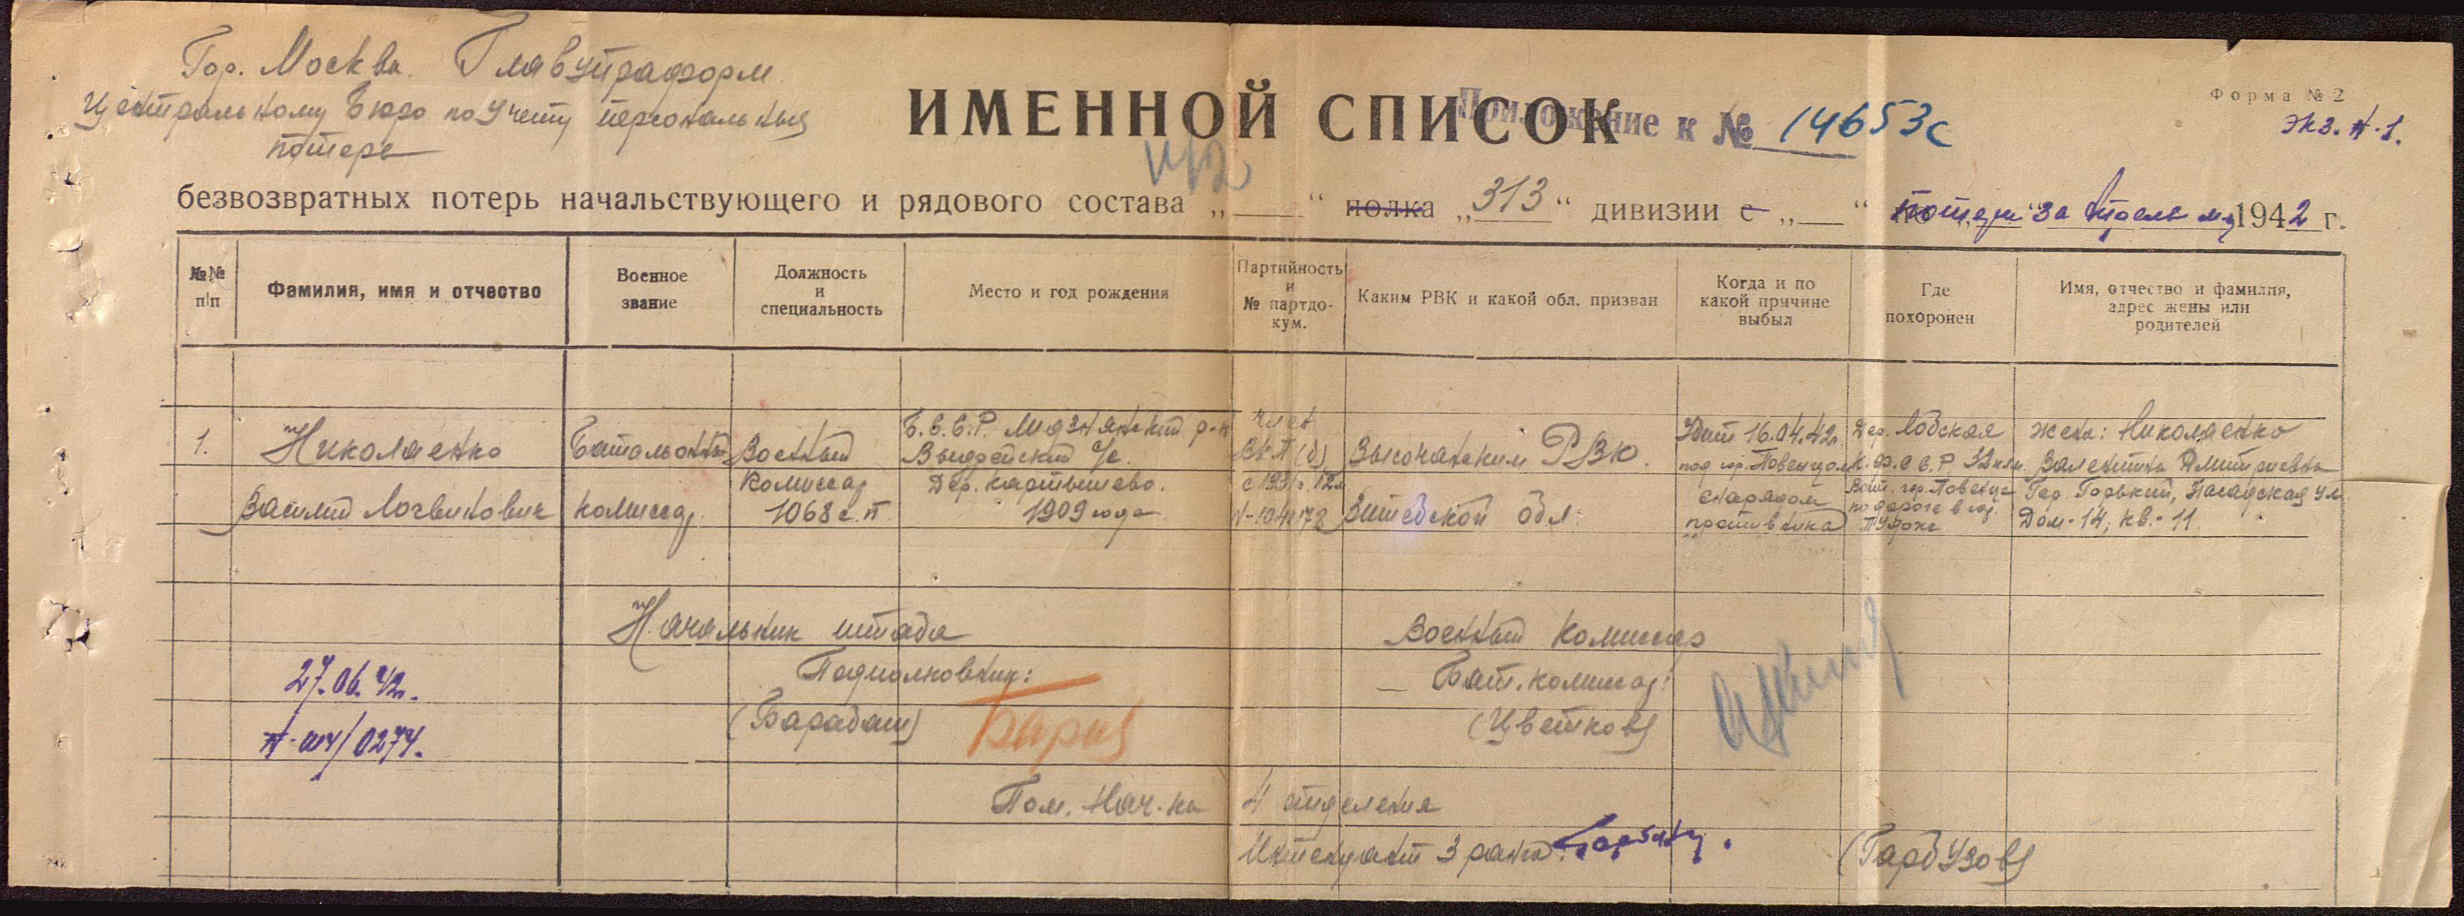 Гор. Москва. Главупраформ
Центральному Бюро по Учету персональных
потерь
Форма № 2
Экз. № 1.
ИМЕННОЙ СПИСОК
Приложение к № 14653с
безвозвратных потерь начальствующего и рядового состава „ “ полка „313“ дивизии с „ “ по потери за Апрель м-ц 1942 г.
№№ п/п
Фамилия, имя и отчество
Военное звание
Должность и специальность
Место и год рождения
Партийность и № партдокум.
Каким РВК и какой обл. призван
Когда и по какой причине выбыл
Где похоронен
Имя, отчество и фамилия, адрес жены или родителей
1.
Николаенко
Василий Логвинович
Батальонный
комиссар
Военный
Комиссар
1068 с.п.
Б.С.С.Р. Лиознянский р-н
Высочанским РВК.
Витебской обл.
Дер. Картышево.
1909 года
член
ВКП(б)
Убит 16.04.42г.
под гор. Повенцом
снарядом
противника
Дер. Лобская
К.Ф.С.С.Р. 32 км.
жена: Николаенко
Валентина Дмитриевна
Гор. Горький,
Дом-14, кв.-11.
Начальник штаба
Подполковник:
(Барабаш)
Военный Комиссар
Бат. комиссар:
(Цветков)
27.06.42г.
0274.
Пом. Нач-ка 4 отделения
Интендант 3 ранга:
(Гарбузов)